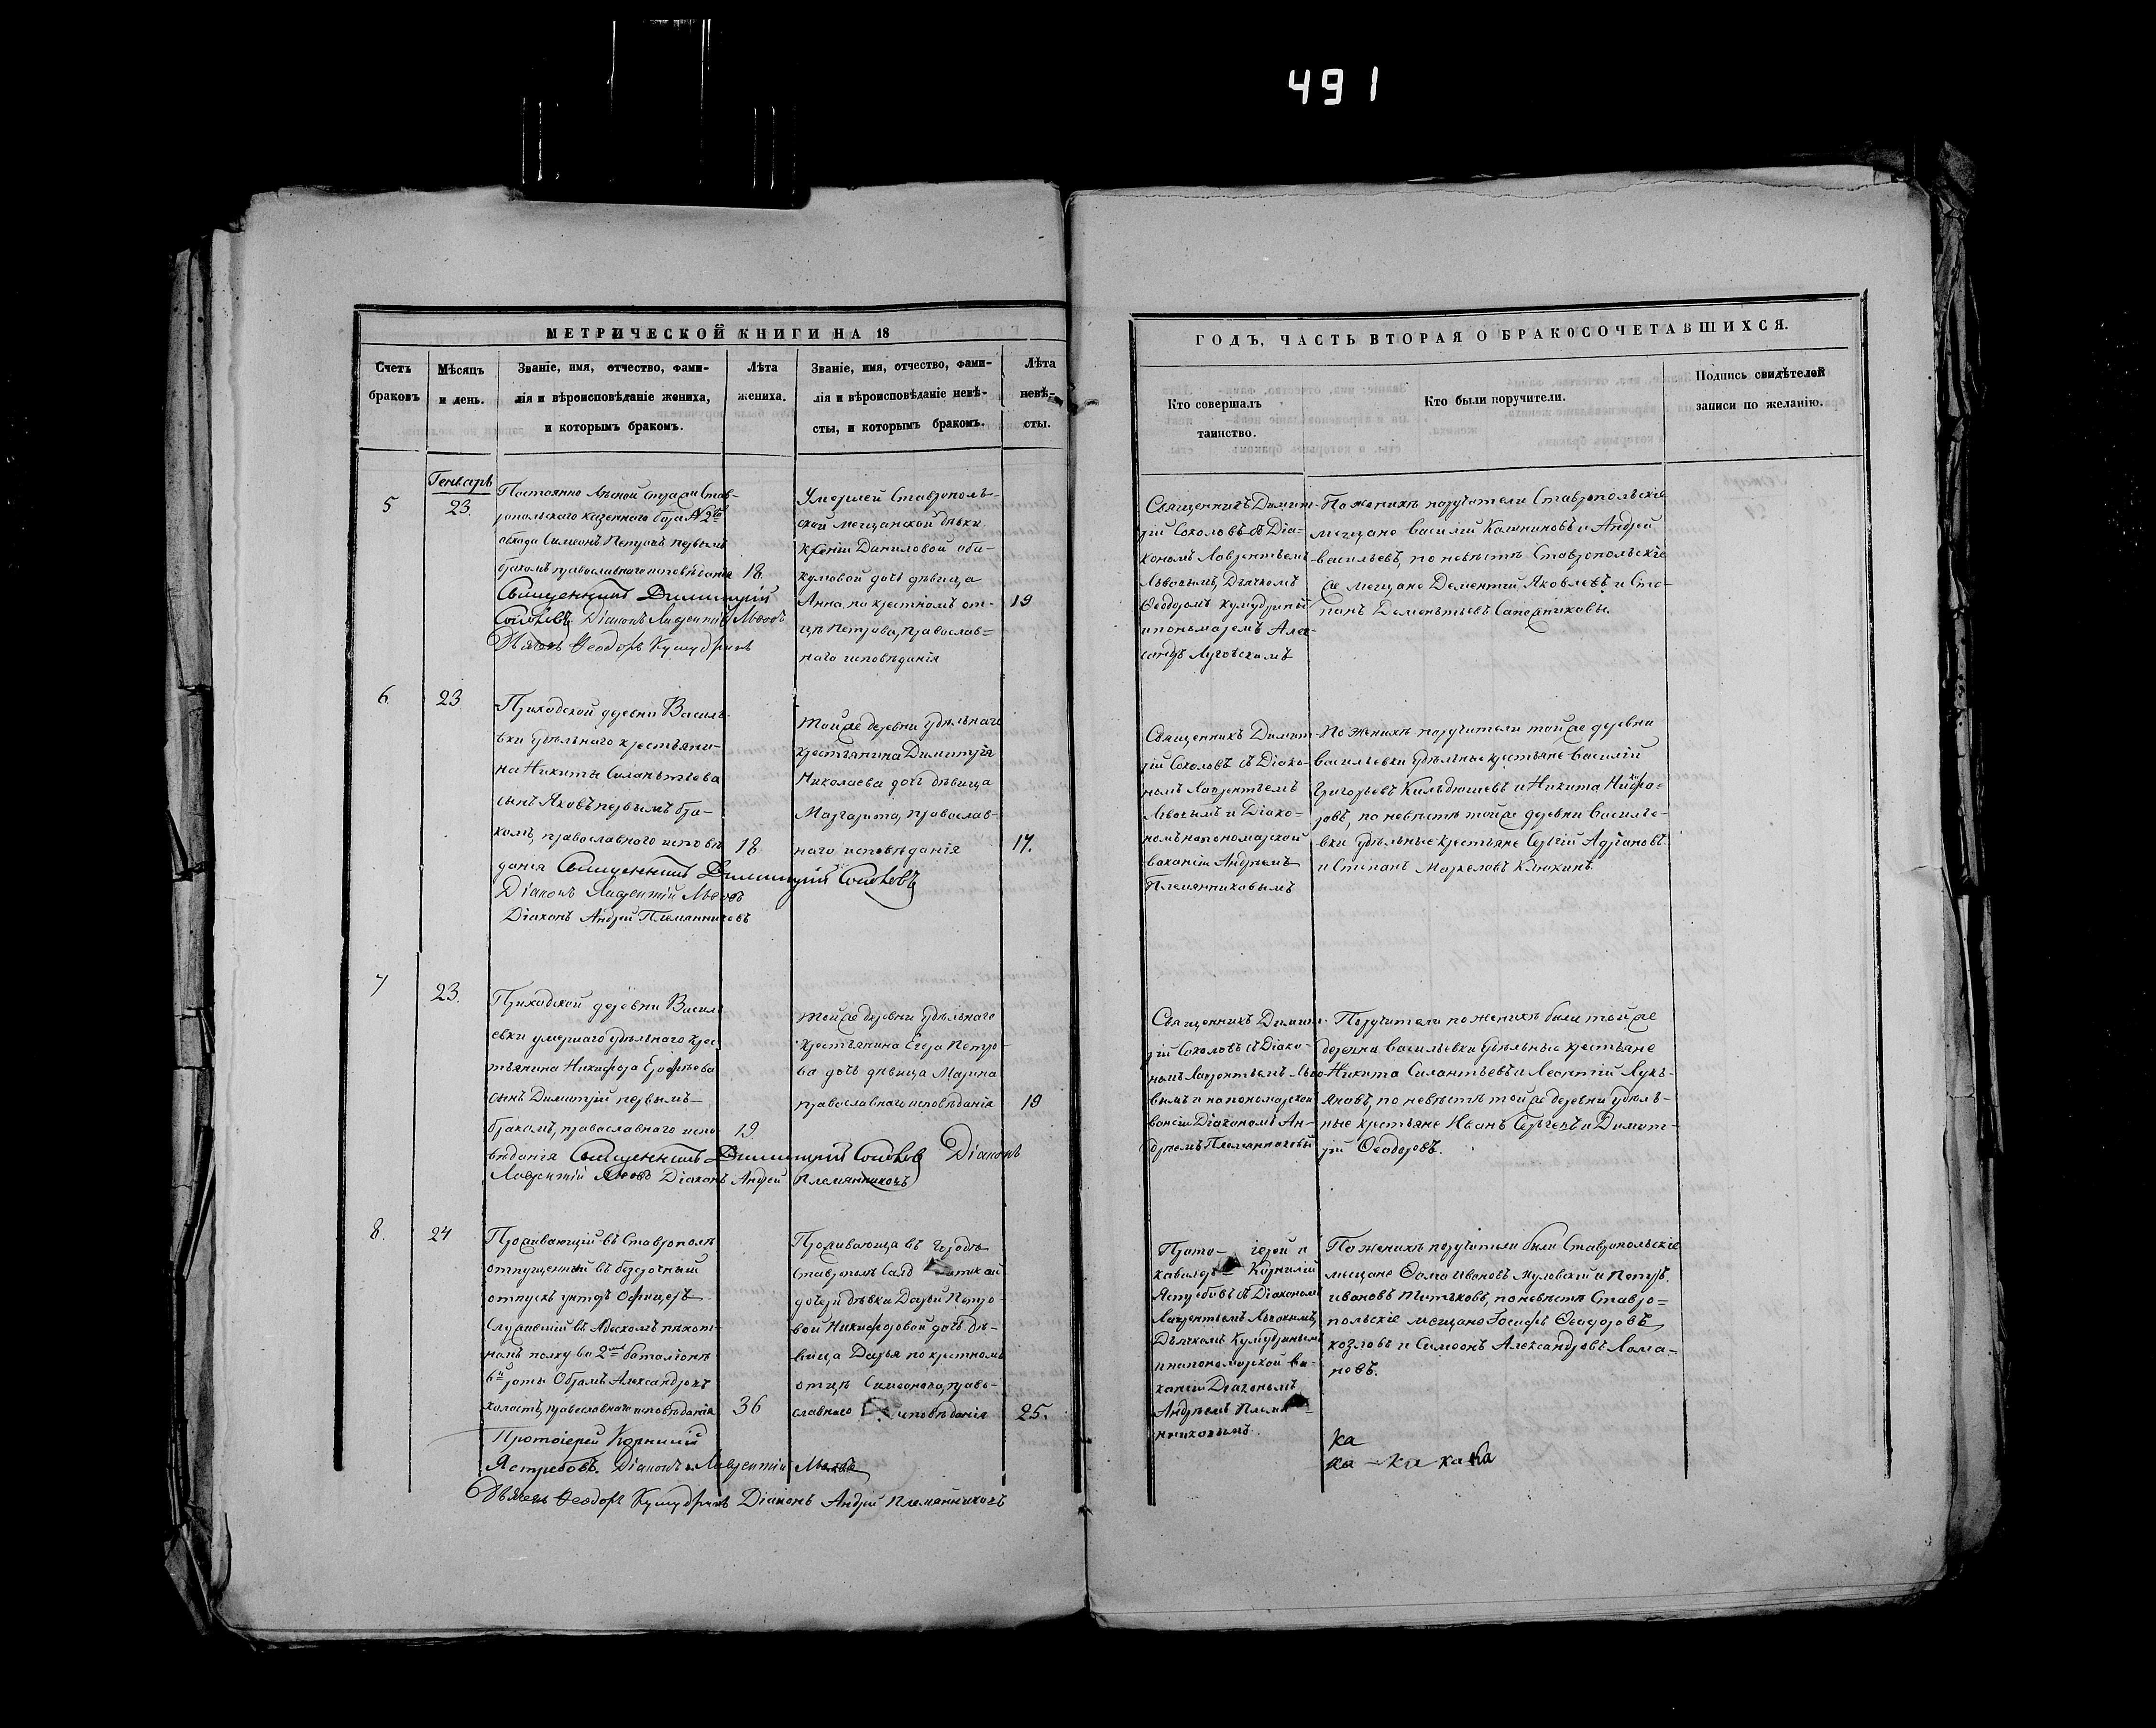 491
МЕТРИЧЕСКОЙ КНИГИ НА 18
Счетъ браковъ
Мѣсяцъ и день.
Званіе, имя, отчество, фами-
лія и вѣроисповѣданіе жениха,
и которымъ бракомъ.
Лѣта
жениха.
Званіе, имя, отчество, фами-
лія и вѣроисповѣданіе невѣ-
сты, и которымъ бракомъ.
Лѣта
невѣ-
сты.
ГОДЪ, ЧАСТЬ ВТОРАЯ О БРАКОСОЧЕТАВШИХСЯ.
Кто совершалъ
таинство.
Кто были поручители.
Подпись свидѣтелей
записи по желанію.
Генварь
5
23.
Постоянно лѣсной стражи Став-
ропольскаго казеннаго бора №2го
Симеонъ Петровъ первымъ
бракомъ православнаго исповѣданія
18
Священникъ Димитрій
Соколовъ Діаконъ Лаврентій Львовъ
Дьячекъ Ѳеодоръ Кумудринъ
Умершей Ставрополь-
ской мещанской дѣвки
Даниловой аба-
кумовой дочь дѣвица
Анна, по крестномъ от-
цѣ Петрова, православ=
наго исповѣданія
19
Священникъ Димит-
рій Соколовъ съ Діа-
кономъ Лаврентьемъ
Львовымъ, Дьячкомъ
Ѳеодоромъ Кумудринымъ
и пономаремъ Алек-
сандр Луговскимъ
По женихѣ поручители Ставропольскіе
мещане Василій Калининовъ и Андрей
Васильевъ, по невѣстѣ Ставропольскіе
же мещане Дементій Яковлевъ и Сте-
панъ Дементьевъ Сапожниковы.
6
23
Приходской деревни Василь-
евки удѣльнаго крестьяни-
на Никиты Силантьева
сынъ Яковъ первымъ бра-
комъ, православнаго исповѣ
18
данія Священникъ Димитрій Соколовъ
Діаконъ Лаврентій Львовъ
Діаконъ Андрей Племянниковъ
Той же деревни удѣльнаго
крестьянина Димитрія
Николаева дочь дѣвица
Маргарита, православ-
наго исповѣданія
17.
Священникъ Димит-
рій Соколовъ съ Діако-
номъ Лаврентьемъ
Львовымъ и Діако-
номъ на пономарской
ваканіи Андреемъ
Племянниковымъ
По женихѣ поручители той же деревни
Васильевки удѣльные крестьяне Василій
Григорьевъ Кильдюшевъ и Никита Нифо-
ровъ, по невѣстѣ той же деревни Василь-
евки удѣльные крестьяне Сергій Адріановъ
и Степанъ Маркеловъ Клюкинъ.
7
23.
Приходской деревни Василь
евки умершаго удѣльнаго крес
тьянина Никифора Ерофѣева
сынъ Димитрій первымъ
бракомъ, православнаго испо
19
вѣданія Священникъ Димитрій Соколовъ Діаконъ
Лаврентій Львовъ Діаконъ Андрей Племянниковъ
Той же деревни удѣльнаго
крестьянина Егора Петро-
ва дочь дѣвица Марина
православнаго исповѣданія
19
Священникъ Димит-
рій Соколовъ съ Діако-
номъ Лаврентьемъ Льво-
вымъ и на пономарской
вакансіи Діакономъ Ан-
дреемъ Племянниковы
Поручители по женихѣ были той же
деревни Васильевки удѣльные крестьяне
Никита Силантьевъ и Леонтій Лукь-
яновъ, по невѣстѣ той же деревни удѣль-
ные крестьяне Иванъ Сергѣевъ и Димит-
рій Ѳеодоровъ.
8.
24
Проживающій въ Ставрополѣ
отпущенный въ безсрочный
отпускъ унтеръ Офицеръ
Служившій въ Азовскомъ пѣхот-
номъ полку во 2мъ баталіонѣ
6й роты Александровъ
холостъ, православнаго исповѣданія
36
Протоіерей Корнилій
Ястребовъ. Діаконъ Лаврентій Львовъ
Дьячекъ Ѳеодоръ Кумудринъ Діаконъ Андрей Племянниковъ
Проживающа въ городѣ
Ставрополѣ
дочери дѣвки Дарьи Петро-
вой Никифоровой дочь дѣ-
вица Дарья по крестномъ
отцѣ Симеонова, право-
славнаго исповѣданія
25.
Прото- іерей и
кавалеръ Корнилій
Ястребовъ съ Діакономъ
Лаврентьемъ Львовымъ,
Дьячкомъ Кумудринымъ
и на пономарской ва-
кансіи Діакономъ
Андреемъ Племя-
нниковымъ.
По женихѣ поручители были Ставропольскіе
мещане Ѳома Ивановъ Муловскій и Петръ
Ивановъ Титьковъ, по невѣстѣ Ставро=
польскіе мещане Іосифъ Ѳеодоровъ
Козловъ и Симеонъ Александровъ Лома-
новъ.
ка
ка - ка ка ка